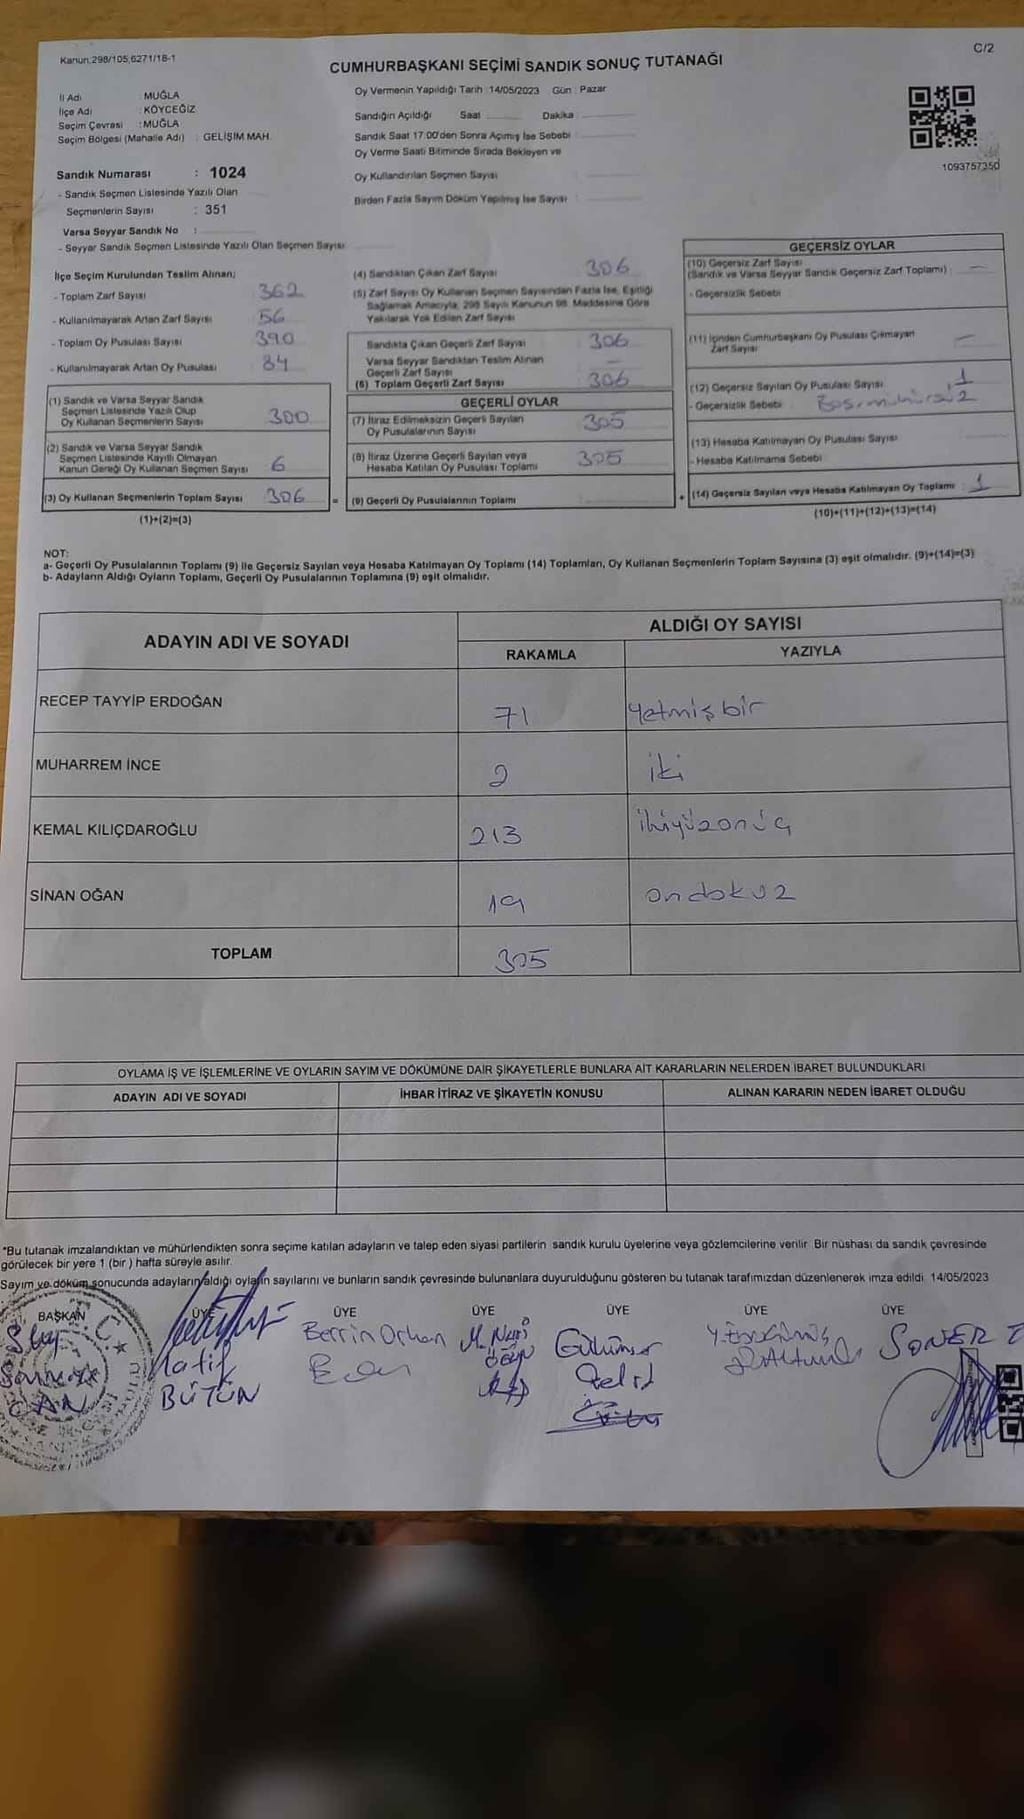 Kanun.298/105,6271/18-1
C/2
CUMHURBAŞKANI SEÇİMİ SANDIK SONUÇ TUTANAĞI
İl Adı : MUĞLA
İlçe Adı : KÖYCEĞİZ
Seçim Çevresi : MUĞLA
Seçim Bölgesi (Mahalle Adı) : GELİŞİM MAH.
Sandık Numarası : 1024
- Sandık Seçmen Listesinde Yazılı Olan
Seçmenlerin Sayısı : 351
Varsa Seyyar Sandık No :
- Seyyar Sandık Seçmen Listesinde Yazılı Olan Seçmen Sayısı
Oy Vermenin Yapıldığı Tarih : 14/05/2023 Gün : Pazar
Sandığın Açıldığı Saat Dakika
Sandık Saat 17:00'den Sonra Açımış İse Sebebi
Oy Verme Saati Bitiminde Sırada Bekleyen ve
Oy Kullandırılan Seçmen Sayısı
Birden Fazla Sayım Döküm Yapılmış İse Sayısı
1093757350
İlçe Seçim Kurulundan Teslim Alınan;
- Toplam Zarf Sayısı 362
- Kullanılmayarak Artan Zarf Sayısı 56
- Toplam Oy Pusulası Sayısı 390
- Kullanılmayarak Artan Oy Pusulası 84
(1) Sandık ve Varsa Seyyar Sandık
Seçmen Listesinde Yazılı Olup
Oy Kullanan Seçmenlerin Sayısı 300
(2) Sandık ve Varsa Seyyar Sandık
Seçmen Listesinde Kayıtlı Olmayan
Kanun Gereği Oy Kullanan Seçmen Sayısı 6
(3) Oy Kullanan Seçmenlerin Toplam Sayısı 306 =
(1)+(2)=(3)
(4) Sandıktan Çıkan Zarf Sayısı 306
(5) Zarf Sayısı Oy Kullanan Seçmen Sayısından Fazla İse, Eşitliği
Sağlamak Amacıyla, 298 Sayılı Kanunun 98. Maddesine Göre
Yakılarak Yok Edilen Zarf Sayısı
Sandıkta Çıkan Geçerli Zarf Sayısı 306
Varsa Seyyar Sandıktan Teslim Alınan
Geçerli Zarf Sayısı —
(6) Toplam Geçerli Zarf Sayısı 306
GEÇERLİ OYLAR
(7) İtiraz Edilmeksizin Geçerli Sayılan
Oy Pusulalarının Sayısı 305
(8) İtiraz Üzerine Geçerli Sayılan veya
Hesaba Katılan Oy Pusulası Toplamı 305
(9) Geçerli Oy Pusulalarının Toplamı
GEÇERSİZ OYLAR
(10) Geçersiz Zarf Sayısı
(Sandık ve Varsa Seyyar Sandık Geçersiz Zarf Toplamı) —
- Geçersizlik Sebebi
(11) İçinden Cumhurbaşkanı Oy Pusulası Çıkmayan
Zarf Sayısı —
(12) Geçersiz Sayılan Oy Pusulası Sayısı 1
- Geçersizlik Sebebi
(13) Hesaba Katılmayan Oy Pusulası Sayısı
- Hesaba Katılmama Sebebi
+ (14) Geçersiz Sayılan veya Hesaba Katılmayan Oy Toplamı 1
(10)+(11)+(12)+(13)=(14)
NOT:
a- Geçerli Oy Pusulalarının Toplamı (9) ile Geçersiz Sayılan veya Hesaba Katılmayan Oy Toplamı (14) Toplamları, Oy Kullanan Seçmenlerin Toplam Sayısına (3) eşit olmalıdır. (9)+(14)=(3)
b- Adayların Aldığı Oyların Toplamı, Geçerli Oy Pusulalarının Toplamına (9) eşit olmalıdır.
ADAYIN ADI VE SOYADI
ALDIĞI OY SAYISI
RAKAMLA YAZIYLA
RECEP TAYYİP ERDOĞAN 71 yetmişbir
MUHARREM İNCE 2 iki
KEMAL KILIÇDAROĞLU 213 ikiyüzonüç
SİNAN OĞAN 19 ondokuz
TOPLAM 305
OYLAMA İŞ VE İŞLEMLERİNE VE OYLARIN SAYIM VE DÖKÜMÜNE DAİR ŞİKAYETLERLE BUNLARA AİT KARARLARIN NELERDEN İBARET BULUNDUKLARI
ADAYIN ADI VE SOYADI İHBAR İTİRAZ VE ŞİKAYETİN KONUSU ALINAN KARARIN NEDEN İBARET OLDUĞU
*Bu tutanak imzalandıktan ve mühürlendikten sonra seçime katılan adayların ve talep eden siyasi partilerin sandık kurulu üyelerine veya gözlemcilerine verilir. Bir nüshası da sandık çevresinde
görülecek bir yere 1 (bir) hafta süreyle asılır.
Sayım ve döküm sonucunda adayların aldığı oyların sayılarını ve bunların sandık çevresinde bulunanlara duyurulduğunu gösteren bu tutanak tarafımızdan düzenlenerek imza edildi. 14/05/2023
BAŞKAN ÜYE ÜYE ÜYE ÜYE ÜYE ÜYE
CAN
Latif
BÜTÜN
Berrin Orhan
SONER